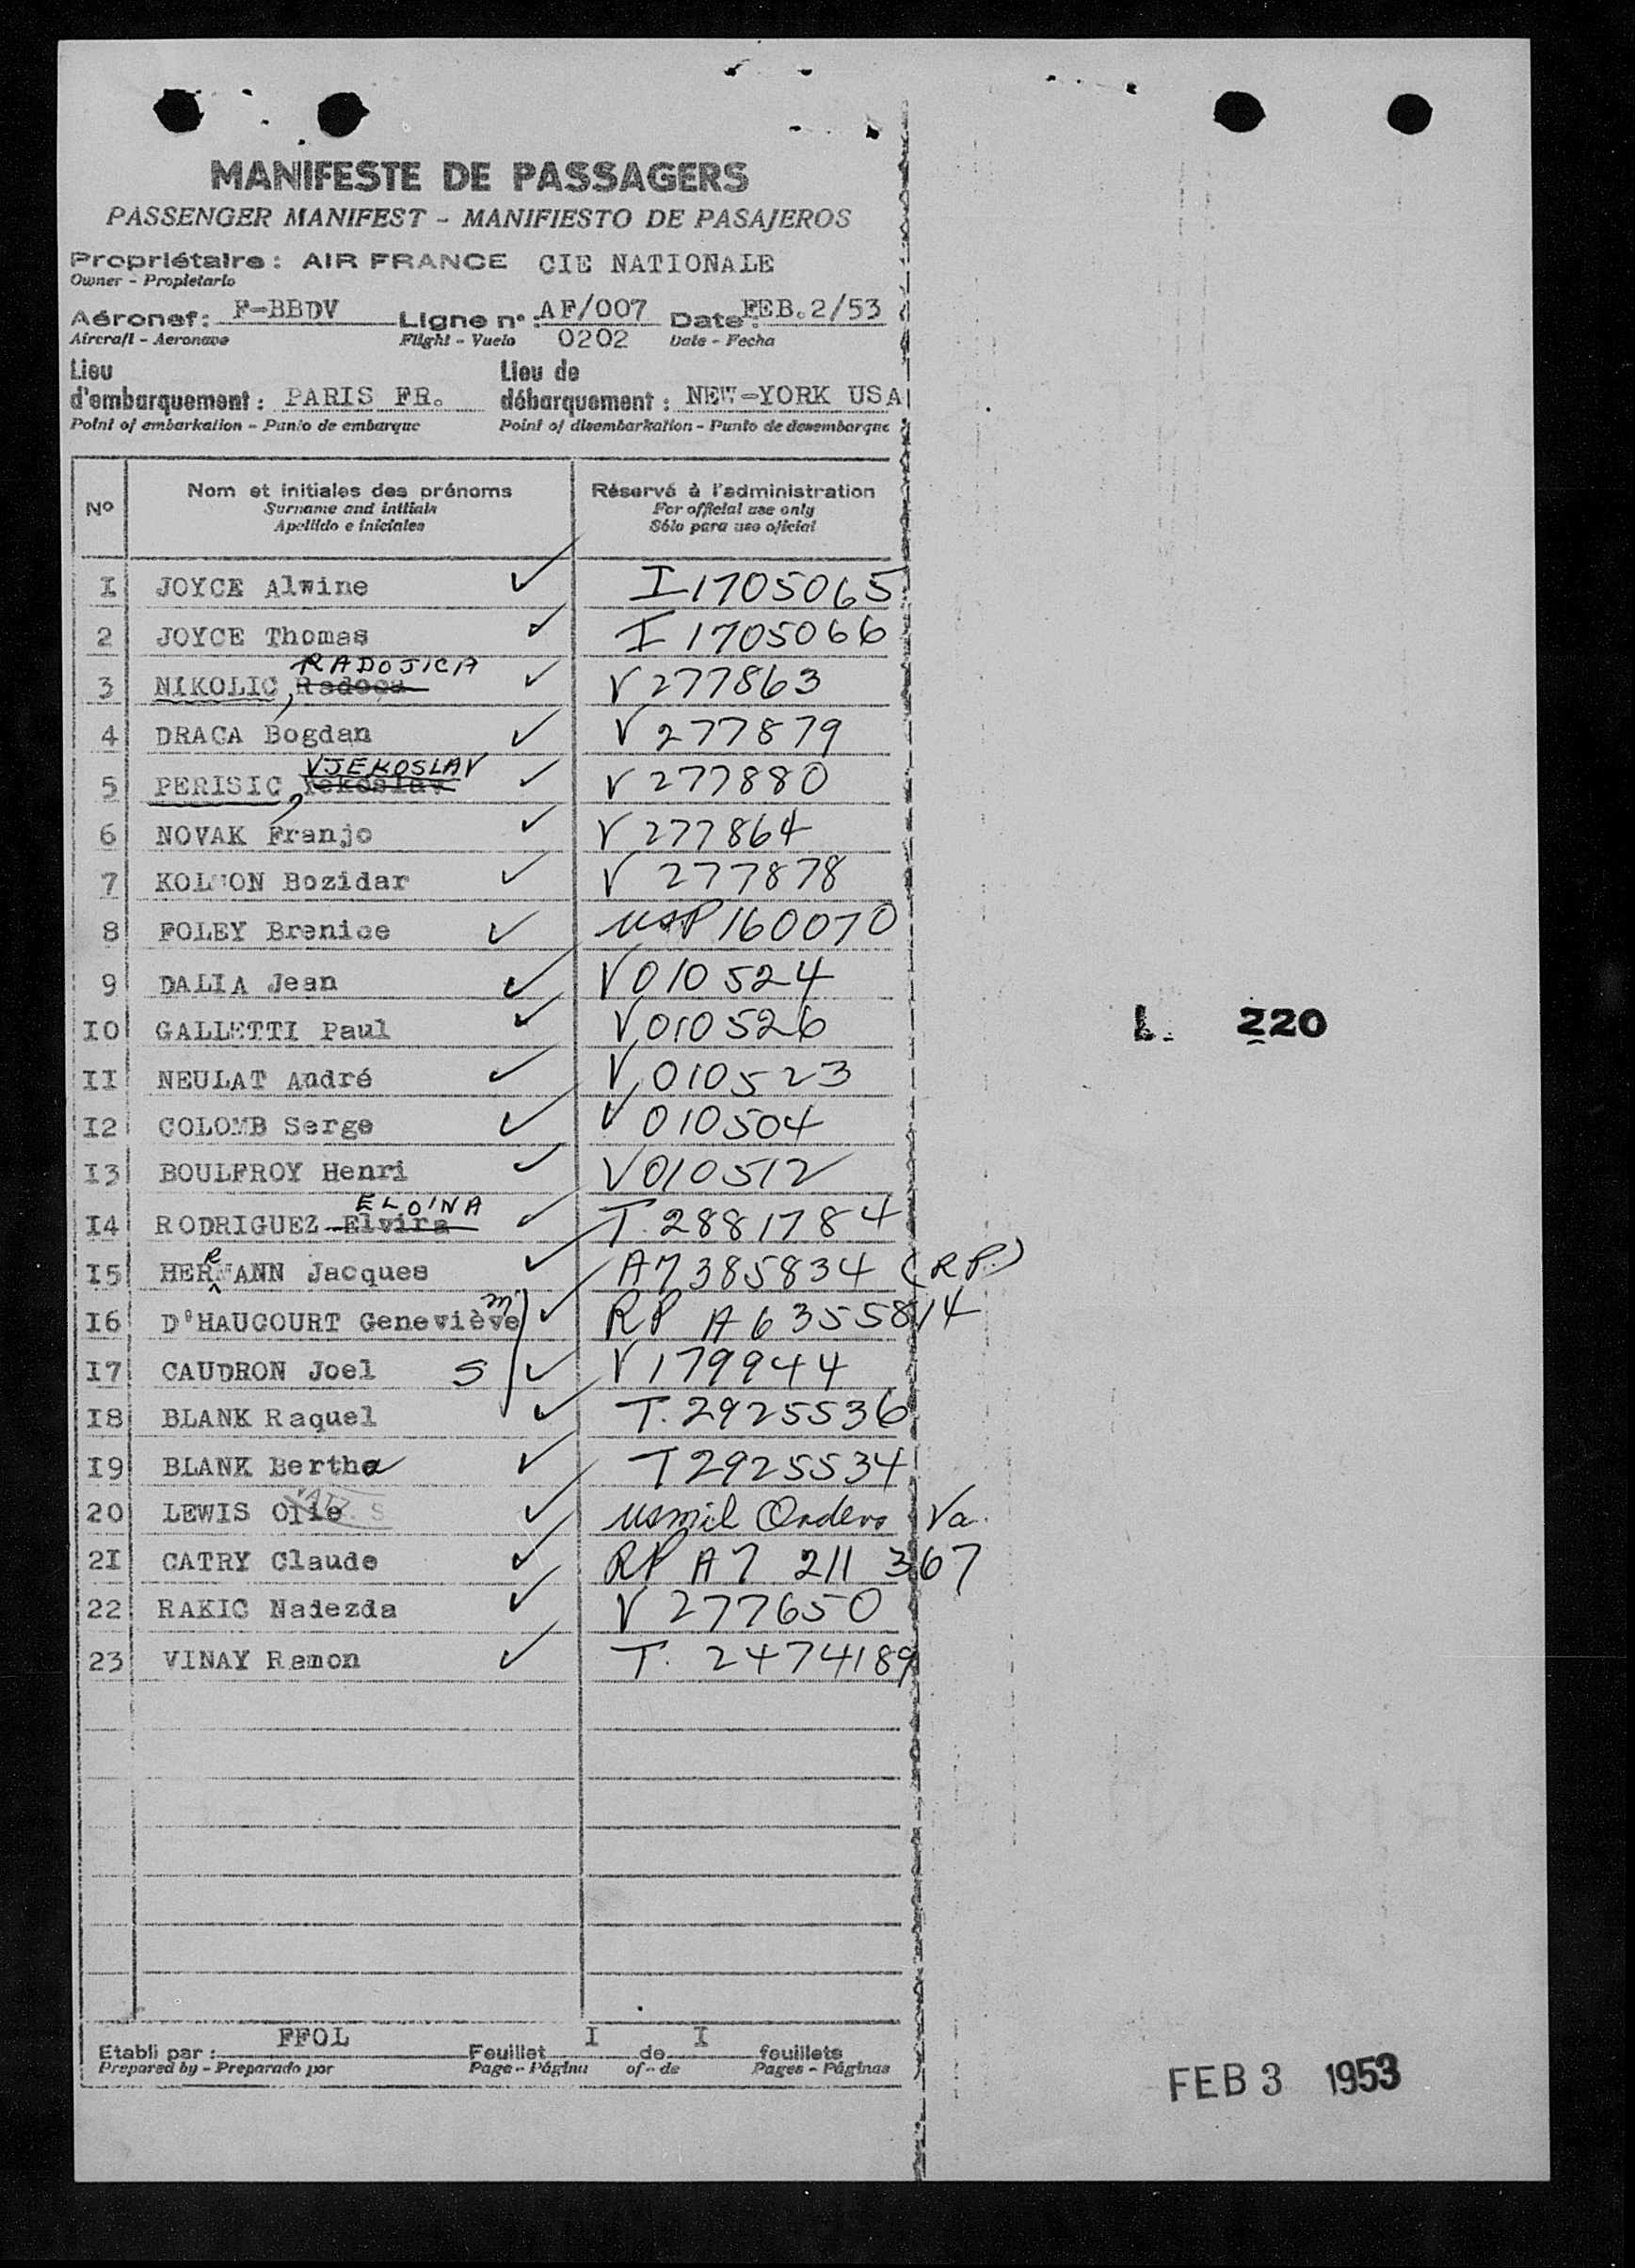 MANIFESTE DE PASSAGERS
PASSENGER MANIFEST - MANIFIESTO DE PASAJEROS
Propriétaire : AIR FRANCE CIE NATIONALE
Owner - Propietario
Aéronef : F-BBDV Ligne n° : AF/007 Date : FEB.2/53
Aircraft - Aeronave Flight - Vuelo 0202 Date - Fecha
Lieu d'embarquement : PARIS FR. Lieu de débarquement : NEW-YORK USA
Point of embarkation - Punto de embarque Point of disembarkation - Punto de desembarque
N° Nom et initiales des prénoms Réservé à l'administration
Surname and initials For official use only
Apellido e iniciales Sólo para uso oficial
I JOYCE Alwine ✓ I 1705065
2 JOYCE Thomas ✓ I 1705066
RADOJICA
3 NIKOLIC, ✓ V 277863
4 DRACA Bogdan ✓ V 277879
VJEKOSLAV
5 PERISIC, Yekoslav ✓ V 277880
6 NOVAK Franjo ✓ V 277864
7 Bozidar ✓ V 277878
8 FOLEY Brenice ✓ USP 160070
9 DALIA Jean ✓ V 010524
I0 GALLETTI Paul ✓ V 010526
II NEULAT André ✓ V 010523
I2 COLOMB Serge ✓ V 010504
I3 BOULFROY Henri ✓ V 010512
ELOINA
I4 RODRIGUEZ Elvira ✓ T. 2881784
R
I5 HERMANN Jacques ✓ A7385834 (R.P.)
m
I6 D'HAUCOURT Geneviève ✓ RP A6355814
I7 CAUDRON Joel S ✓ V 179944
I8 BLANK Raquel ✓ T. 2925536
I9 BLANK Bertha ✓ T 2925534
20 LEWIS ✓ usmil Orders Va.
2I CATRY Claude ✓ RP A7 211 367
22 RAKIC Nadezda ✓ V 277650
23 VINAY Ramon ✓ T. 2474189
L. 220
Etabli par : FFOL Feuillet I de I feuillets
Prepared by - Preparado por Page - Página of - de Pages - Páginas
FEB 3 1953